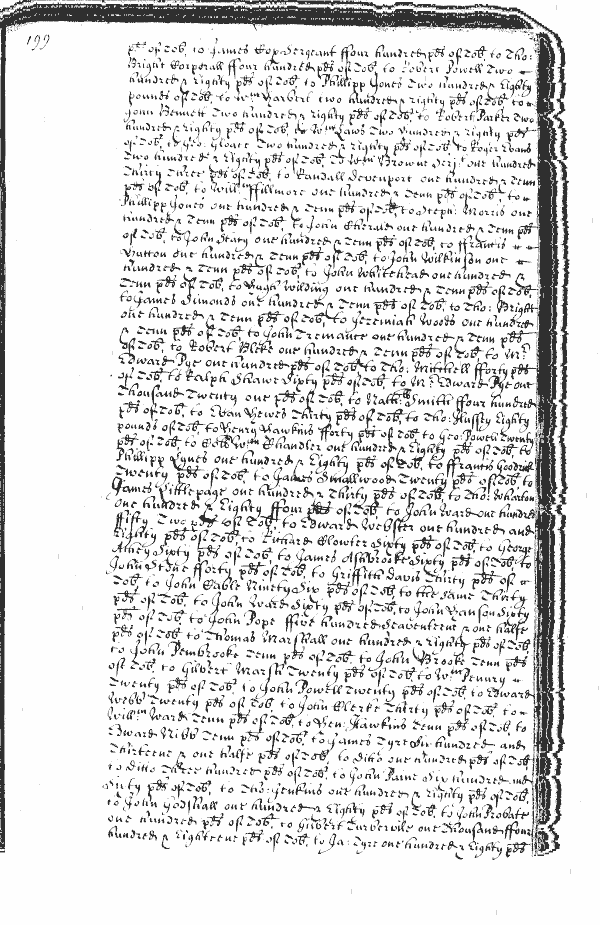 199
pds of Tob, to James Cop Sergeant ffour hundred pds of Tob, to Tho:
Bright Corporall ffour hundred pds of Tob, to Robert Powell Two
hundred & Eighty pds of Tob, to Phillipp Jones Two hundred & Eighty
pounds of Tob, to Wm Harbert two hundred & eighty pds of Tob, to
John Bennett Two hundred & Eighty pds of Tob, to Robert Parker Two
hundred & Eighty pds of Tob, to Wm Laws Two hundred & Eighty pds
of Tob, to Geo: Two hundred & Eighty pds of Tob, to Roger Evans
Two hundred & Eighty pds of Tob, to Wm Browne Serjt one hundred
Thirty Three pds of Tob, to Randall Devenport one hundred & Tenn
pds of Tob, to Willm ffillmore one hundred & Tenn pds of Tob, to
Phillipp Jones one hundred & Tenn pds of Tob, to Steph: Morris one
hundred & Tenn pds of Tob, to John one hundred & Tenn pds
of Tob, to John Stacy one hundred & Tenn pds of Tob, to ffrancis
Hutton one hundred & Tenn pds of Tob, to John Wilkinson one
hundred & Tenn pds of Tob, to John Whitehead one hundred &
Tenn pds of Tob, to Hugh Wilding one hundred & Tenn pds of Tob,
to James Simonds one hundred & Tenn pds of Tob, to Tho: Bright
one hundred & Tenn pds of Tob, to Jeremiah Woods one hundred
& Tenn pds of Tob, to John one hundred & Tenn pds
of Tob, to Robert Blike one hundred & Tenn pds of Tob, to Mr
Edward Pye one hundred pds of Tob, to Tho: Mitchell fforty pds
of Tob, to Ralph Shawe Sixty pds of Tob, to Mr Edward Pye one
Thousand Twenty one pds of Tob, to Nath: Smith ffour hundred
pds of Tob, to Evan Thirty pds of Tob, to Tho: Hussey Eighty
pounds of Tob, to Henry Hawkins fforty pds of Tob, to Geo: Powell Twenty
pds of Tob, to Coll Wm Chandler one hundred & Eighty pds of Tob, to
Phillipp Lynes one hundred & Eighty pds of Tob, to ffrancis Goodrick
Twenty pds of Tob, to James Smallwood Twenty pds of Tob, to
James Littlepage one hundred & Thirty pds of Tob, to Tho: Wharton
one hundred & Eighty ffour pds of Tob, to John Ward one hundred
ffifty Two pds of Tob, to Edward Webster one hundred and
Eighty pds of Tob, to Richard Clowter Sixty pds of Tob, to George
Athey Sixty pds of Tob, to James Ashbrooke Sixty pds of Tob, to
John Stone fforty pds of Tob, to Griffith Davis Thirty pds of
Tob, to John Cable Ninety Six pds of Tob, to the same Thirty
pds of Tob, to John Ward Sixty pds of Tob, to John Hanson Sixty
pds of Tob, to John Pope ffive hundred Seaventeene & one halfe
pds of Tob, to Thomas Marshall one hundred & Eighty pds of Tob,
to John Pembrooke Tenn pds of Tob, to John Brooke Tenn pds
of Tob, to Gilbert Marsh Twenty pds of Tob, to Wm Penny
Twenty pds of Tob, to John Powell Twenty pds of Tob, to Edward
Webb Twenty pds of Tob, to John Clerke Thirty pds of Tob, to
Willm Ward Tenn pds of Tob, to Hen: Hawkins Tenn pds of Tob, to
Edward Nibb Tenn pds of Tob, to James Tyre Six hundred and
Thirteene & one halfe pds of Tob, to ditto one hundred pds of Tob,
to ditto Three hundred pds of Tob, to John Paine Six hundred and
Sixty pds of Tob, to Tho: Jenkins one hundred & Eighty pds of Tob,
to John Godshall one hundred & Eighty pds of Tob, to John Probate
one hundred pds of Tob, to Gilbert Turbervile one Thousand ffour
hundred & Eighteene pds of Tob, to Ja: Tyre one hundred & Eighty pds